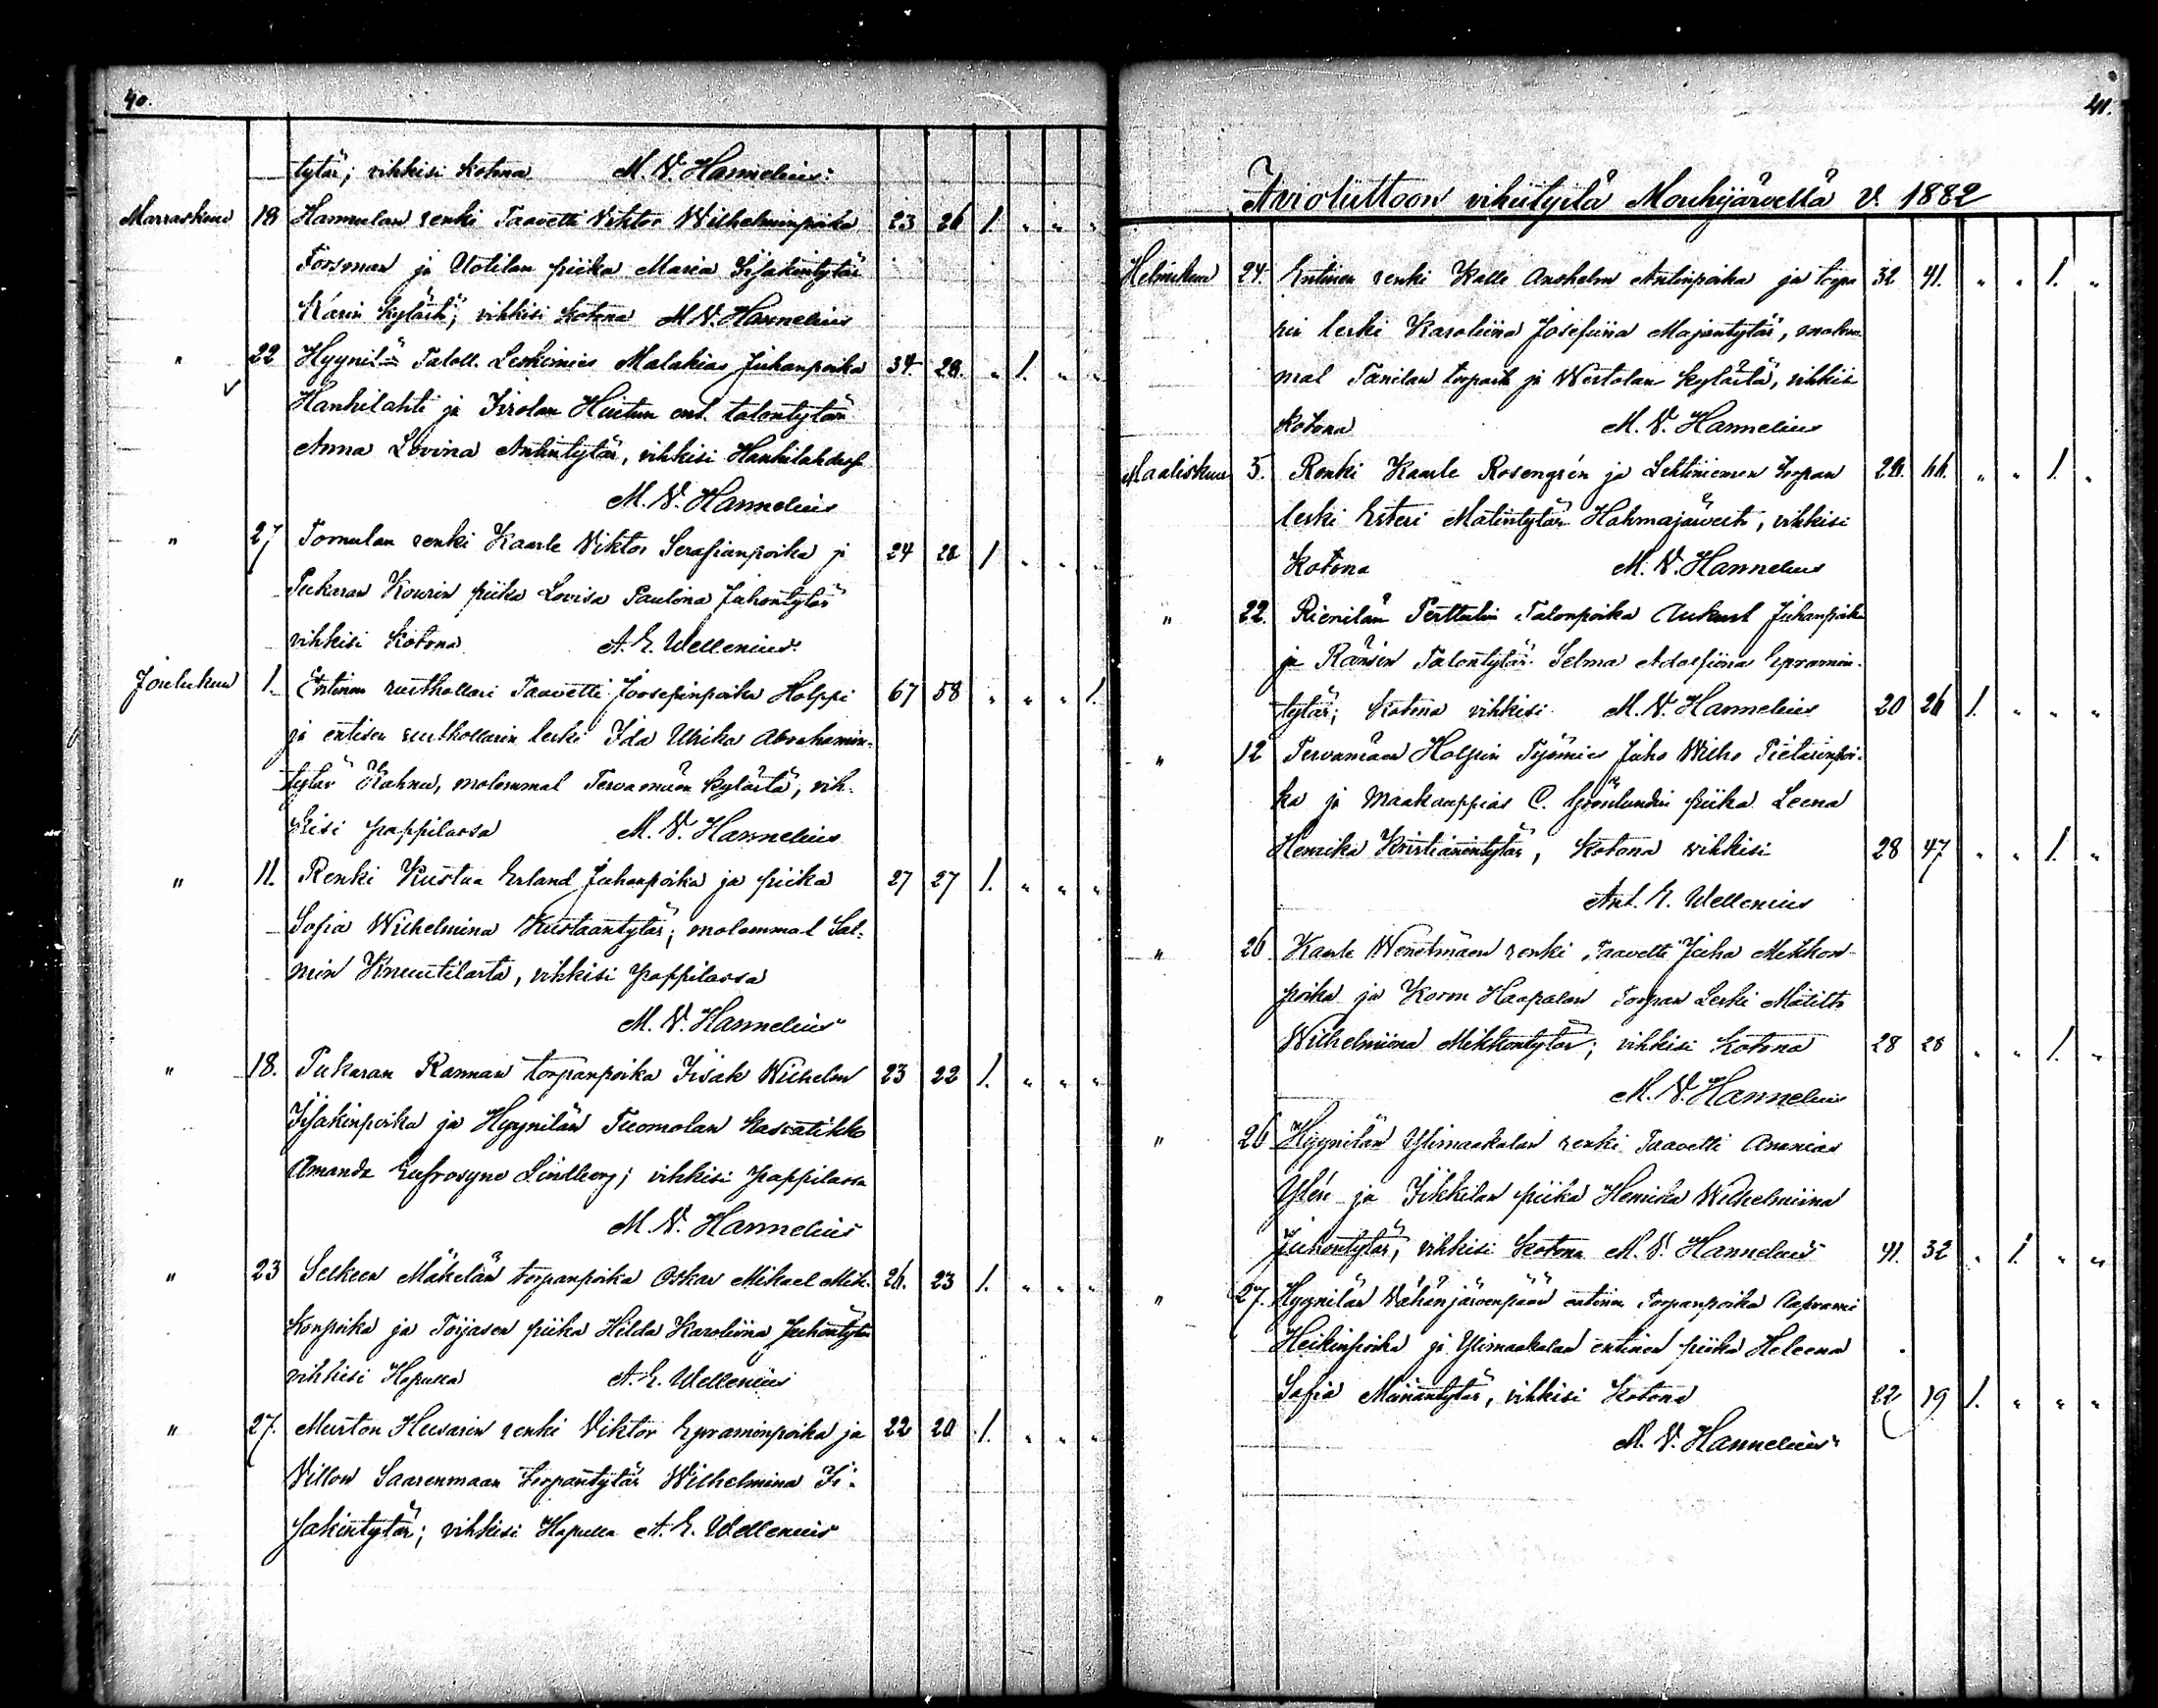 40.
tytär; vihkisi kotona M. V. Hannelius
Marraskuu 18 Hannulan renki Taavetti Viktor Wilhelminpoika 23 26 1. " " "
Forsman ja Uotilan piika Maria Iisakintytär
Karin kylästä; vihkisi kotona M. V. Hannelius
" 22 Hyynilän Taloll. Leskimies Malakias Juhanpoika 34 28. " 1. " "
Hanhilahti ja Iirolan Huitun ent. talontytär
Anna Lovina Antintytär, vihkisi
M. V. Hannelius
" 27 Tomulan renki Kaarle Viktor Serafianpoika ja 24 22 1 " " "
Pukaran Kourin piika Lovisa Paulina Juhontytär
vihkisi kotona A. E. Wellenius
Joulukuu 1. Entinen rusthollari Taavetti Joosepinpoika Holppi 67 58 " " " 1.
ja entisen rusthollarin leski Ida Ulrika Abrahamin-
tytär molemmat Tervamäen kylästä, vih-
kisi pappilassa M. V. Hannelius
" 11. Renki Kustaa Erland Juhanpoika ja piika 27 27 1. " " "
Sofia Wilhelmina Kustaantytär; molemmat Sal-
min Knuutilasta, vihkisi pappilassa
M. V. Hannelius
" 18. Pukaran Rannan torpanpoika Iisak Wilhelm 23 22 1. " " "
Iisakinpoika ja Hyynilän Tuomolan kasvatikko
Amanda Eufrosyne Lindberg; vihkisi pappilassa
M. V. Hannelius
" 23 Selkeen Mäkelän torpanpoika Oskar Mikael Mik- 26. 23 1. " " "
konpoika ja Toijasen piika Hilda Karoliina Juhontytär
vihkisi Hapulla A. E. Wellenius
" 27. Murton Husarin renki Viktor Epraminpoika ja 22 20 1. " " "
Villon Saarenmaan torpantytär Wilhelmina Ii-
sakintytär; vihkisi Hapulla A. E. Wellenius
41.
Avioliittoon vihityitä Mouhijärvellä v. 1882
Helmikuu 24. Entinen renki Kalle Anshelm Antinpoika ja torpa 32 41. " " 1. "
rin leski Karoliina Josefiina Majantytär, molem
mat Tanilan torpasta ja Westolan kylästä, vihkisi
kotona M. V. Hannelius
Maaliskuu 5. Renki Kaarle Rosengrén ja Lehtiniemen torpan 28. 66. " " 1. "
leski Esteri Matintytär Hahmajärvestä, vihkisi
Kotona M. V. Hannelius
" 22. Rienilän Perttulin Talonpoika Aukust Juhanpoika
ja Ränsin Talontytär Selma Adolfiina Epramin-
tytär; kotona vihkisi M. V. Hannelius 20 26 1. " " "
" 12 Tervamäen Holpin Työmies Juho Wilho Pietarinpoi-
ka ja Maakauppias C. Grönlundin piika Leena
Henrika Kristianintytär, kotona vihkisi 28 47 " " 1. "
Ant. E. Wellenius
" 26 Kaarle Wenetmäen renki Taavetti Juha Mikkon-
poika ja Korm Haapalan Torpan Leski Matilta
Wilhelmiina Mikkontytär; vihkisi kotona 28 28 " " 1. "
M. V. Hannelius
" 26 Hyynilän Ylimaakalan renki Taavetti Ananias
Ylén ja Iikkilan piika Henrika Wilhelmiina
Juhontytär, vihkisi kotona M. V. Hannelius 41. 32 " 1. " "
" 27. Hyynilän Wähänjärvenpään entinen Torpanpoika Aaprami
Heikinpoika ja Ylimaakalan entinen piika Heleena
Sofia Manantytär, vihkisi kotona 22 19 1. " " "
M. V. Hannelius